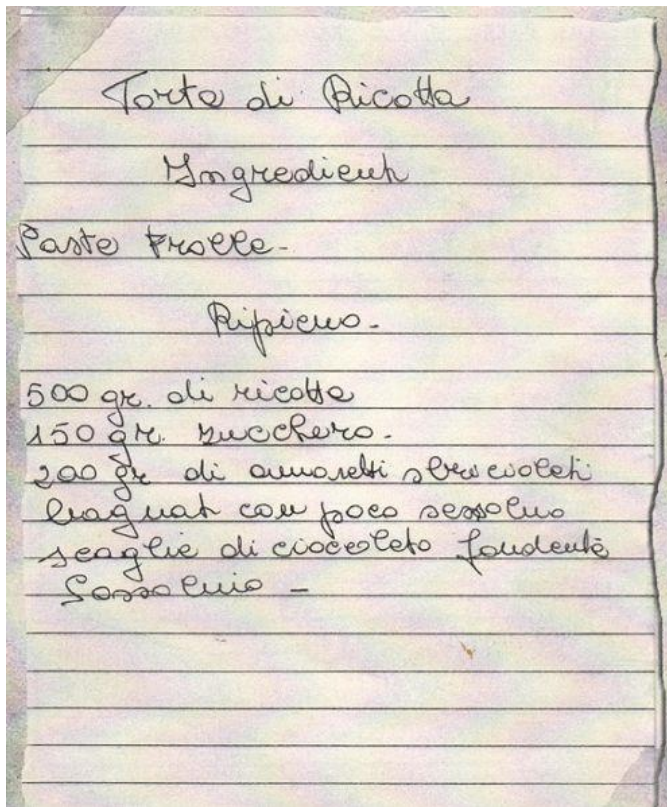 Torta di Ricotta
Ingredienti
Pasta Frolla -
Ripieno -
500 gr. di ricotta
150 gr. zucchero -
200 gr di amaretti sbriciolati
bagnati con poco sassolino
scaglie di cioccolato fondente
Sassolino -